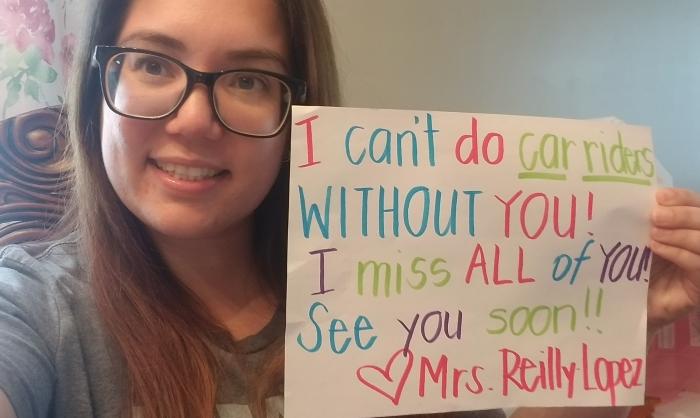 I can't do car riders
WITHOUT YOU!
I miss ALL of YOU!
See you soon!!
♡ Mrs. Reilly-Lopez